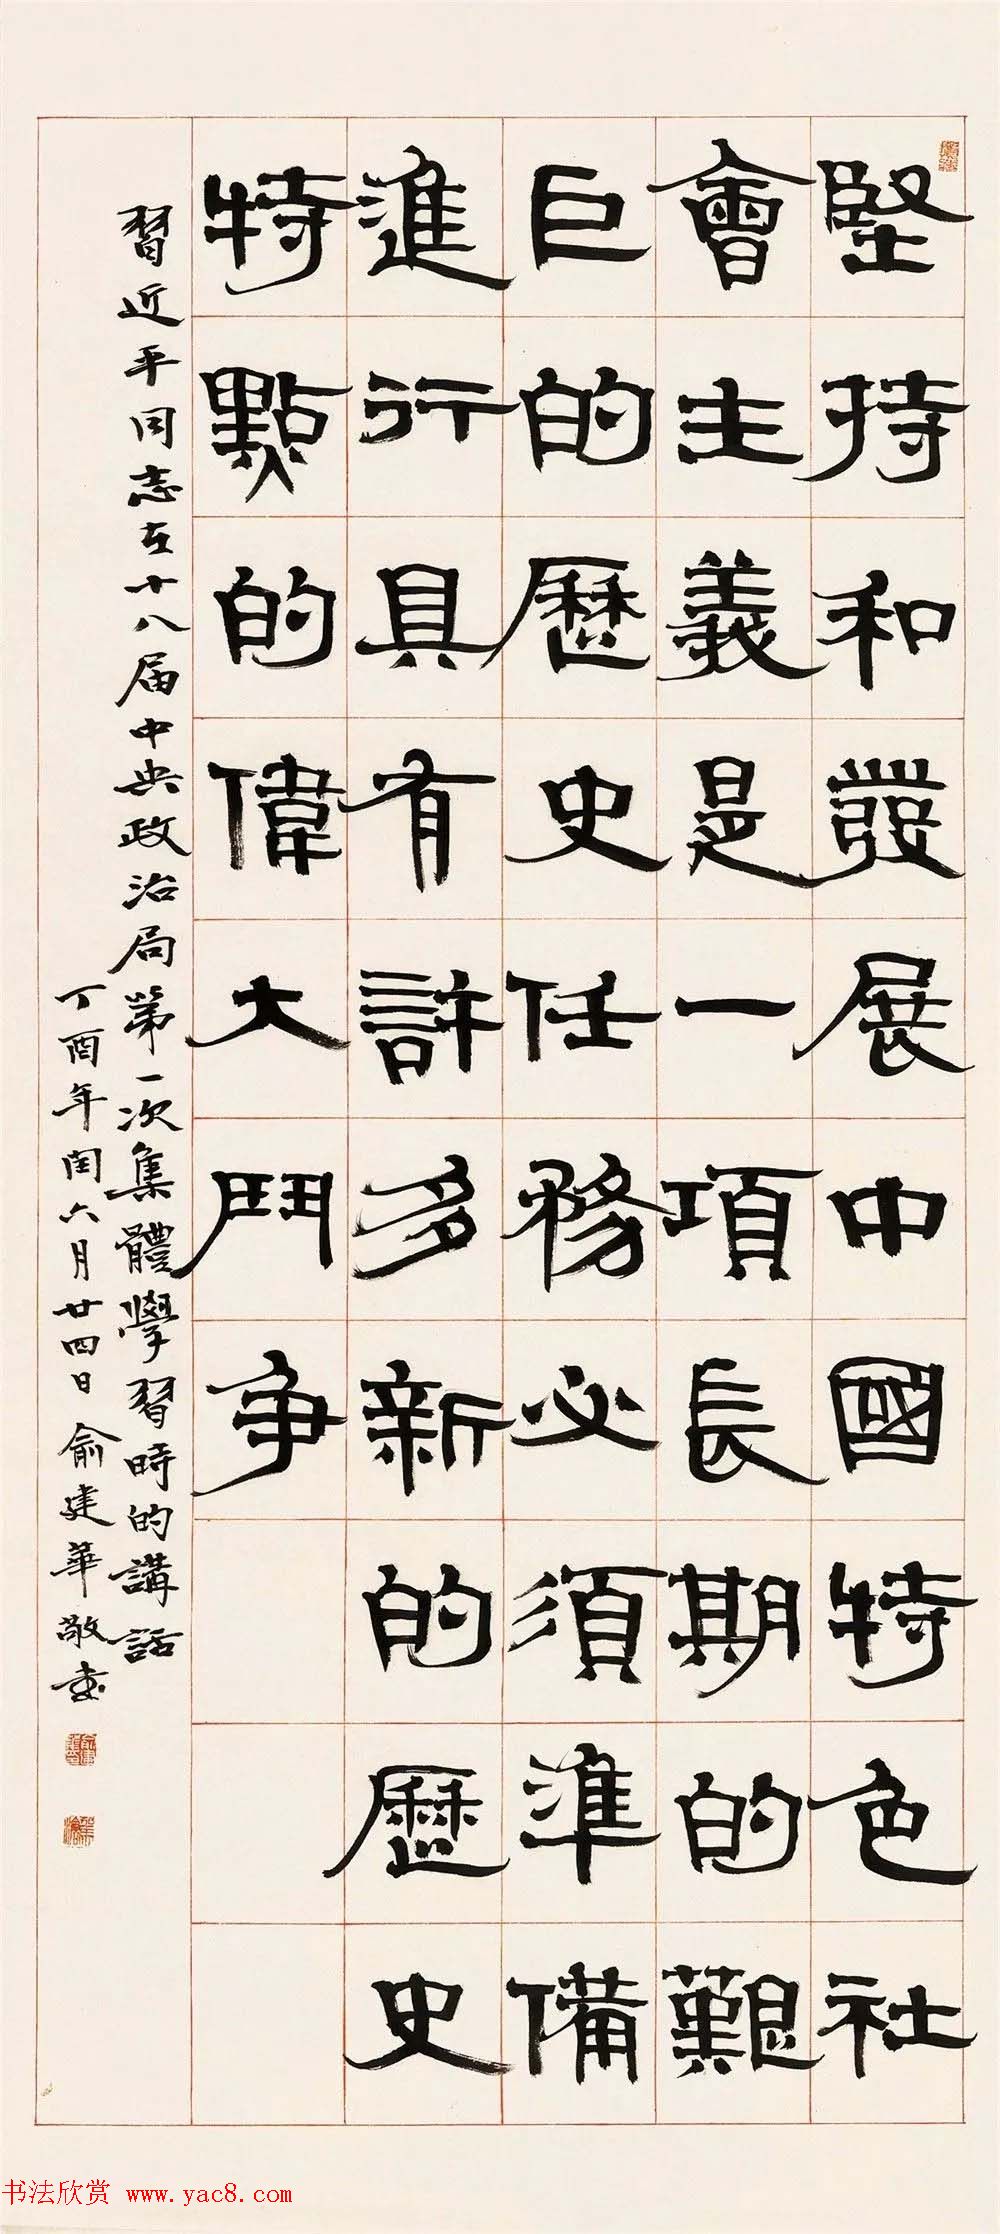 堅持和發展中國特色社
會主義是一項長期的艱
巨的歷史任務必須準備
進行具有許多新的歷史
特點的偉大鬥爭
習近平同志在十八届中央政治局第一次集體學習時的講話
丁酉年閏六月廿四日俞建華敬書
书法欣赏 www.yac8.com